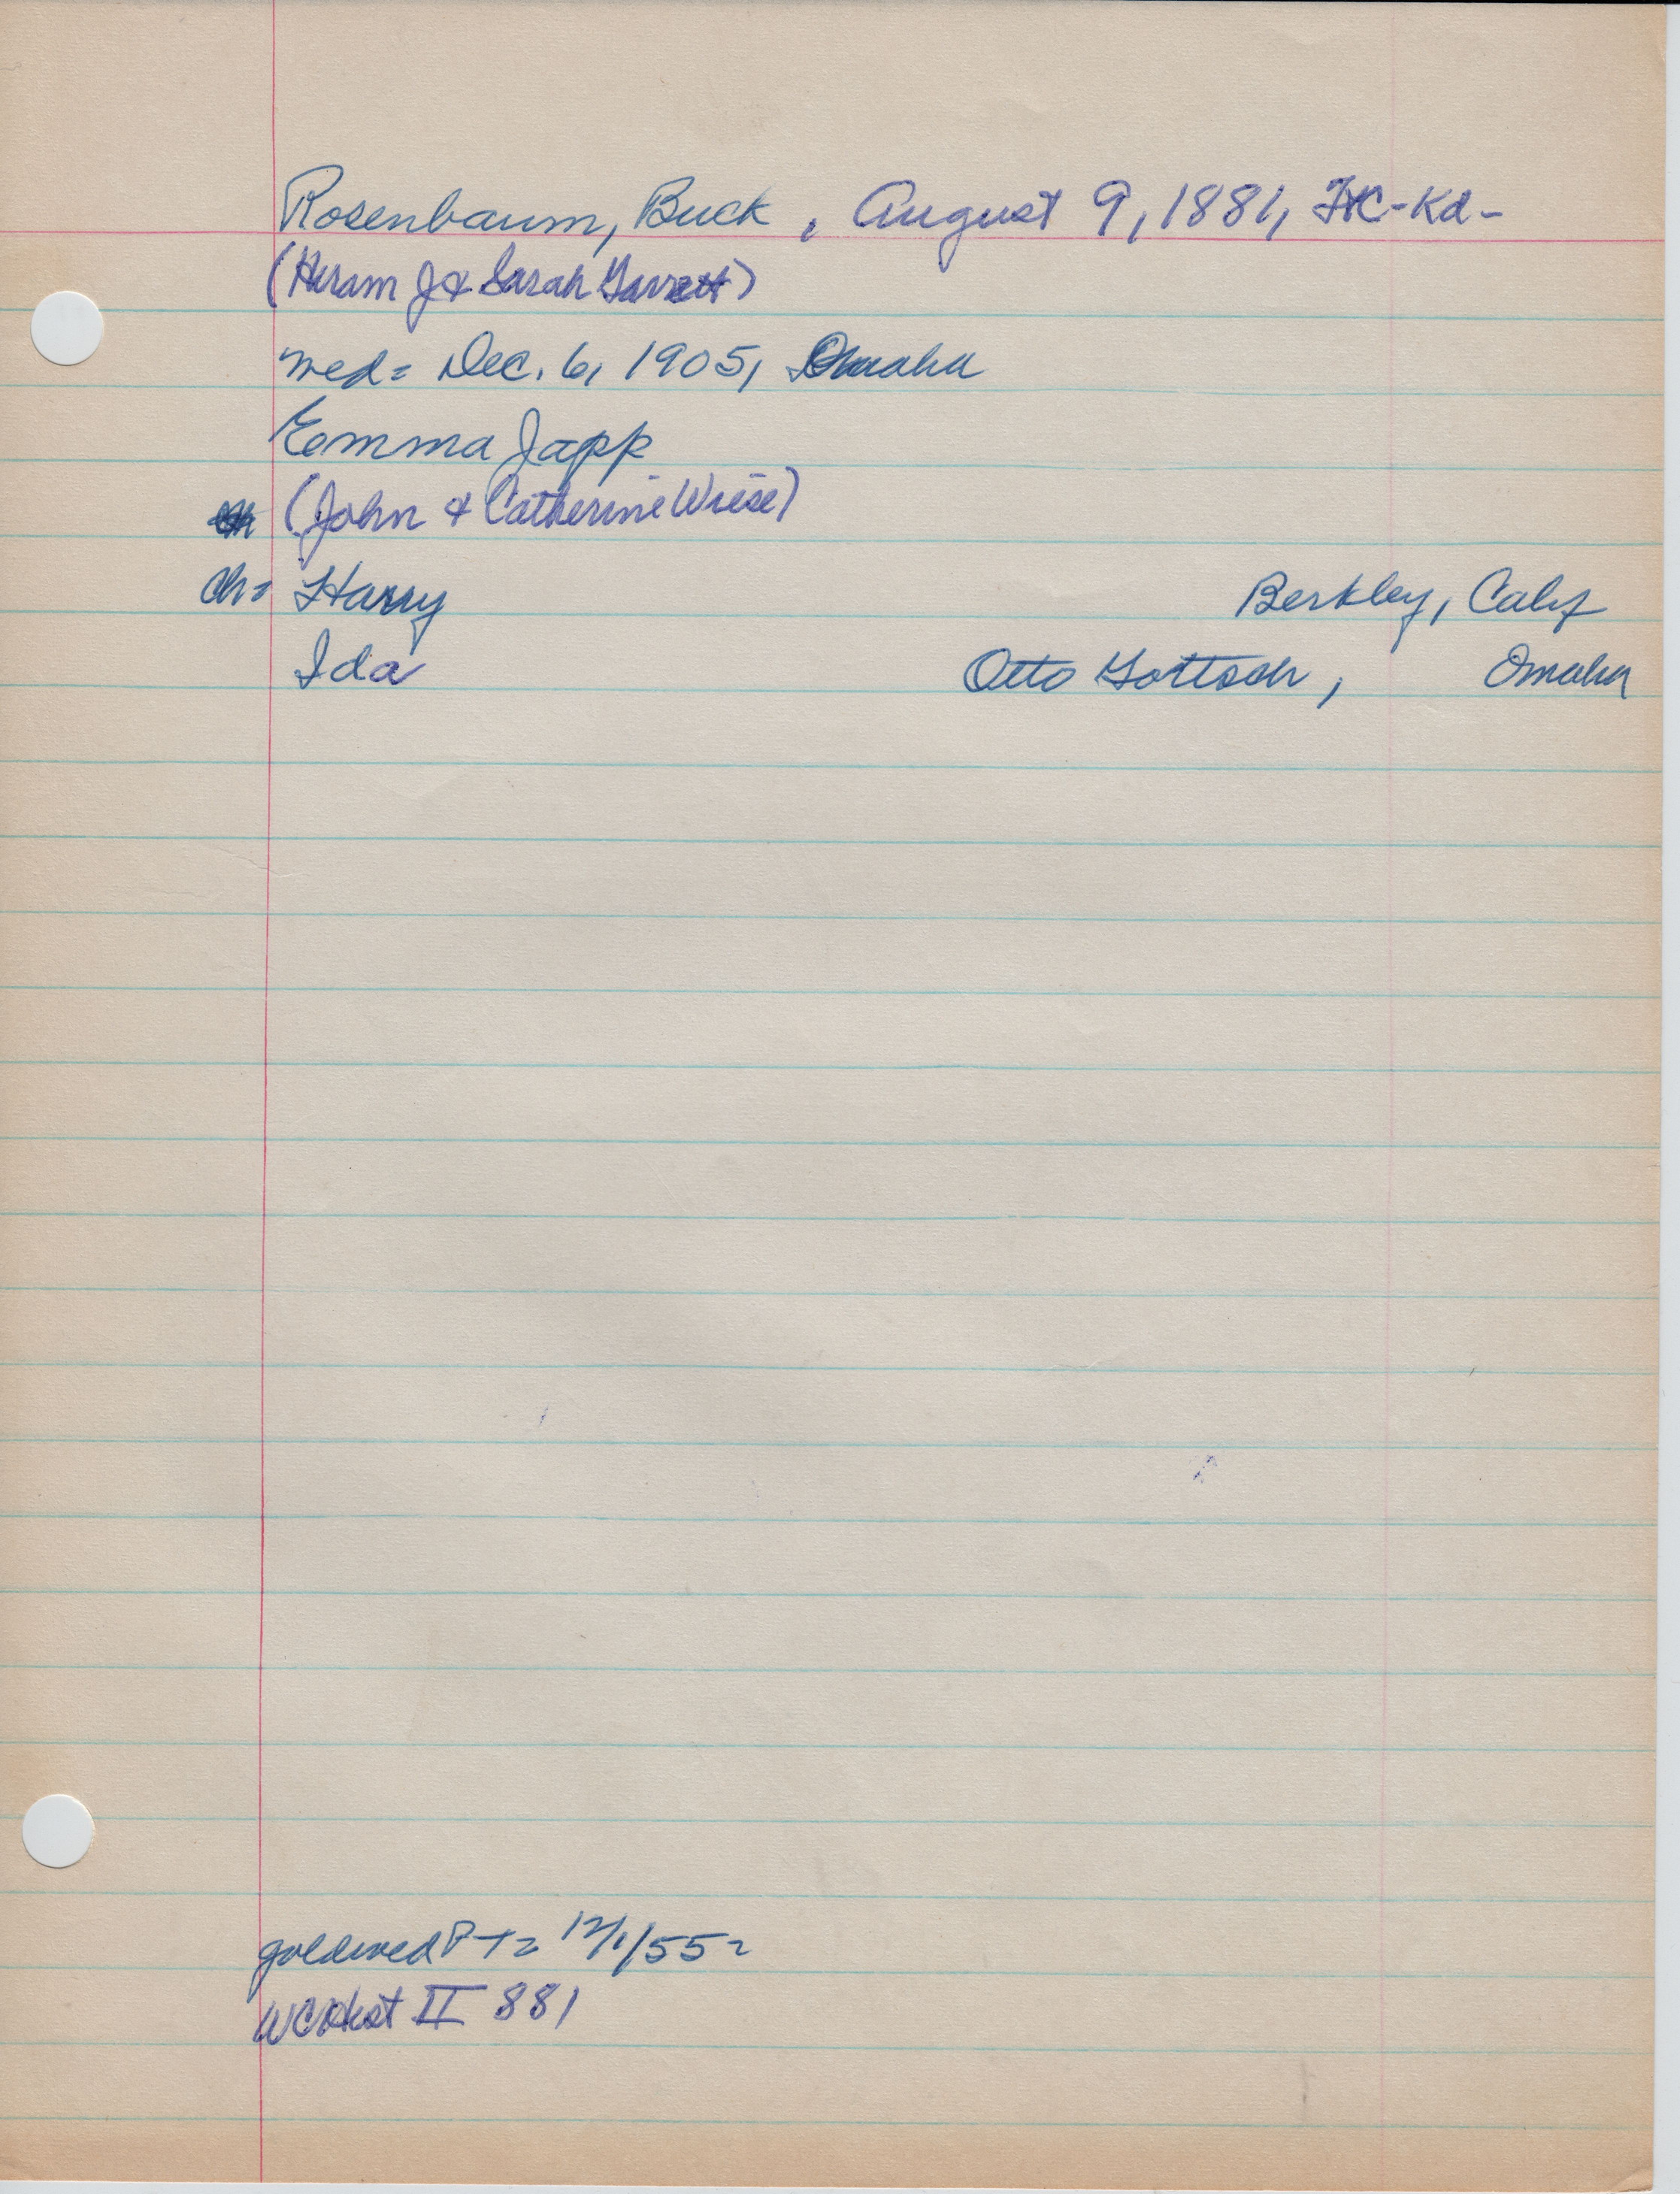 Rosenbaum, Buck, August 9, 1881, FtC-Kd-
(Hiram J & Sarah Garrett)
wed= Dec. 6, 1905, Omaha
Emma Japp
(John & Catherine Wiese)
ch= Harry Berkley, Calif
Ida Otto Gottsch, Omaha
goldwed P-T= 12/1/55=
WCHist II 881